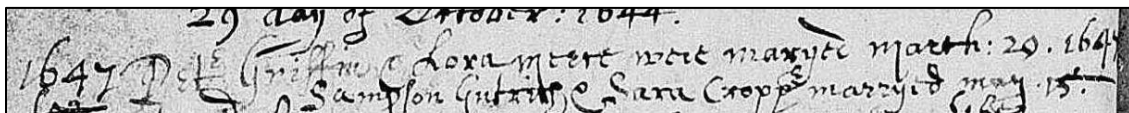 29 day of October: 1644.
1647 Petr Griffin & Lora meere were maryed march: 20. 1647
Sampson Gutrich & Sara Cropp marryed may. 15.